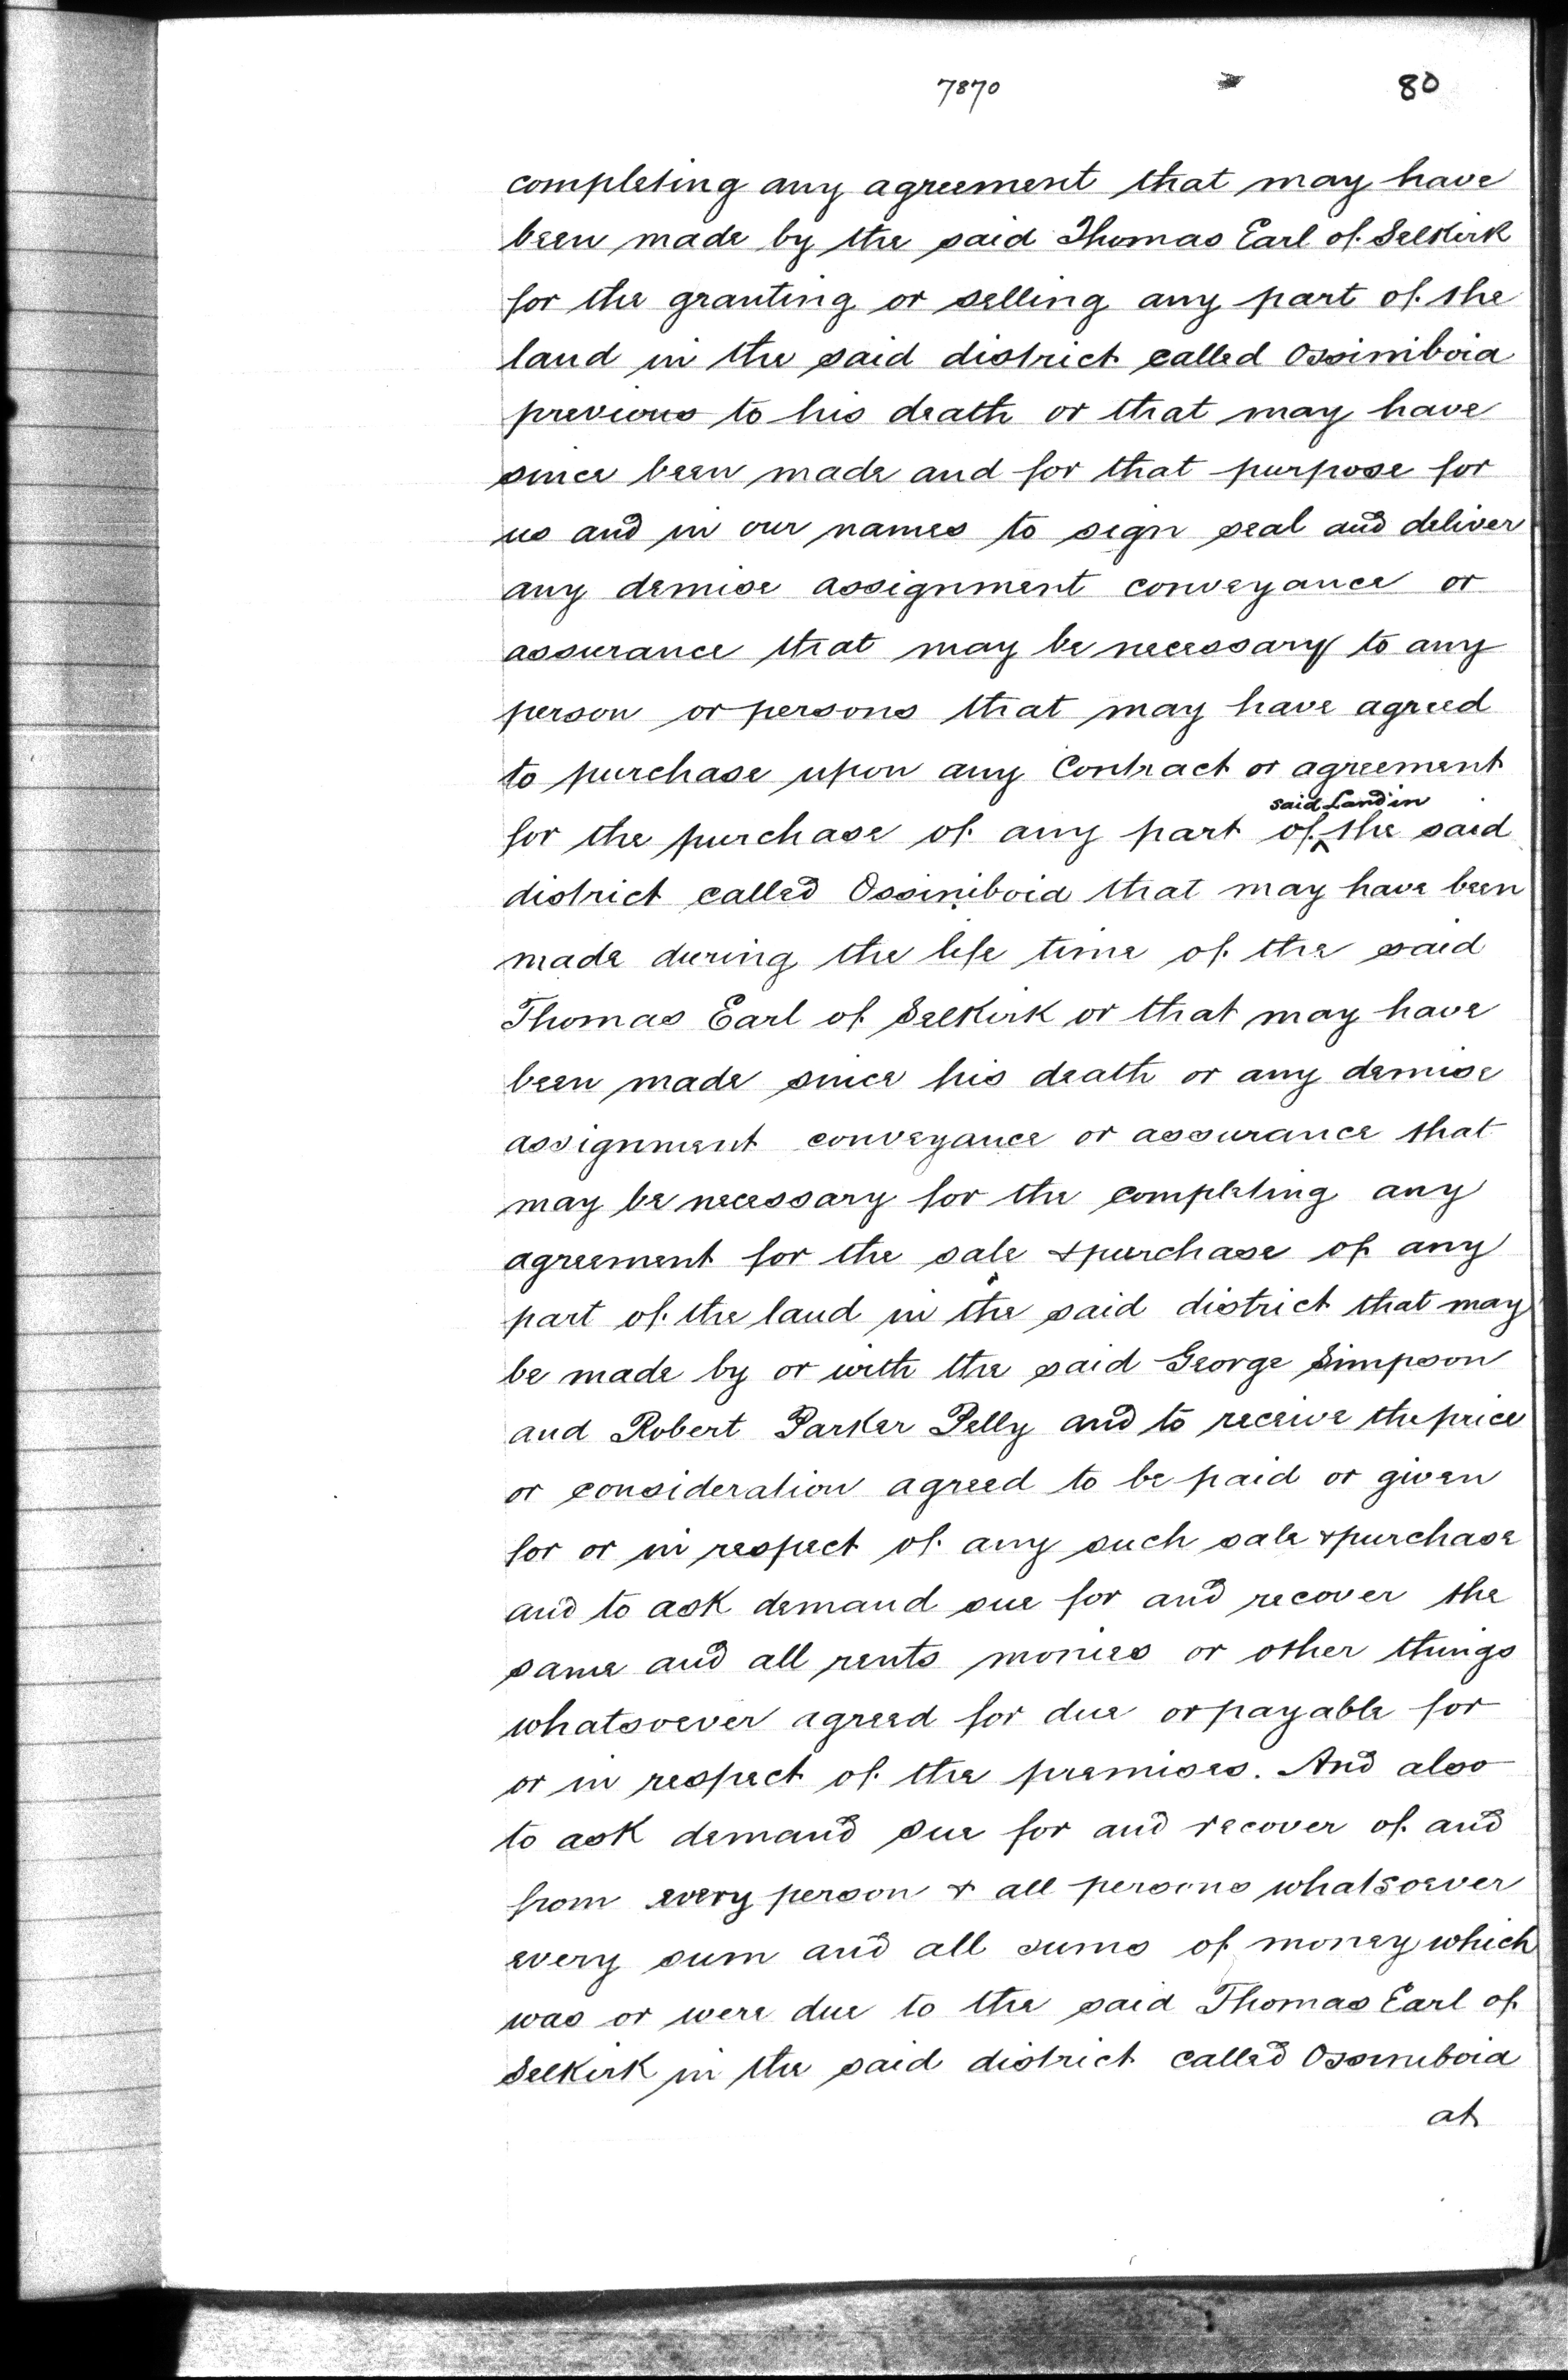 7870 80
completing any agreement that may have
been made by the said Thomas Earl of Selkirk
for the granting or selling any part of the
land in the said district called Ossiniboia
previous to his death or that may have
since been made and for that purpose for
us and in our names to sign seal and deliver
any demise assignment conveyance or
assurance that may be necessary to any
person or persons that may have agreed
to purchase upon any Contract or agreement
said Land in
for the purchase of any part of ‸ the said
district called Ossiniboia that may have been
made during the life time of the said
Thomas Earl of Selkirk or that may have
been made since his death or any demise
assignment conveyance or assurance that
may be necessary for the completing any
agreement for the sale & purchase of any
part of the land in the said district that may
be made by or with the said George Simpson
and Robert Parker Pelly and to receive the price
or consideration agreed to be paid or given
for or in respect of any such sale & purchase
and to ask demand sue for and recover the
same and all rents monies or other things
whatsoever agreed for due or payable for
or in respect of the premises. And also
to ask demand sue for and recover of and
from every person & all persons whatsoever
every sum and all sums of money which
was or were due to the said Thomas Earl of
Selkirk in the said district called Ossiniboia
at